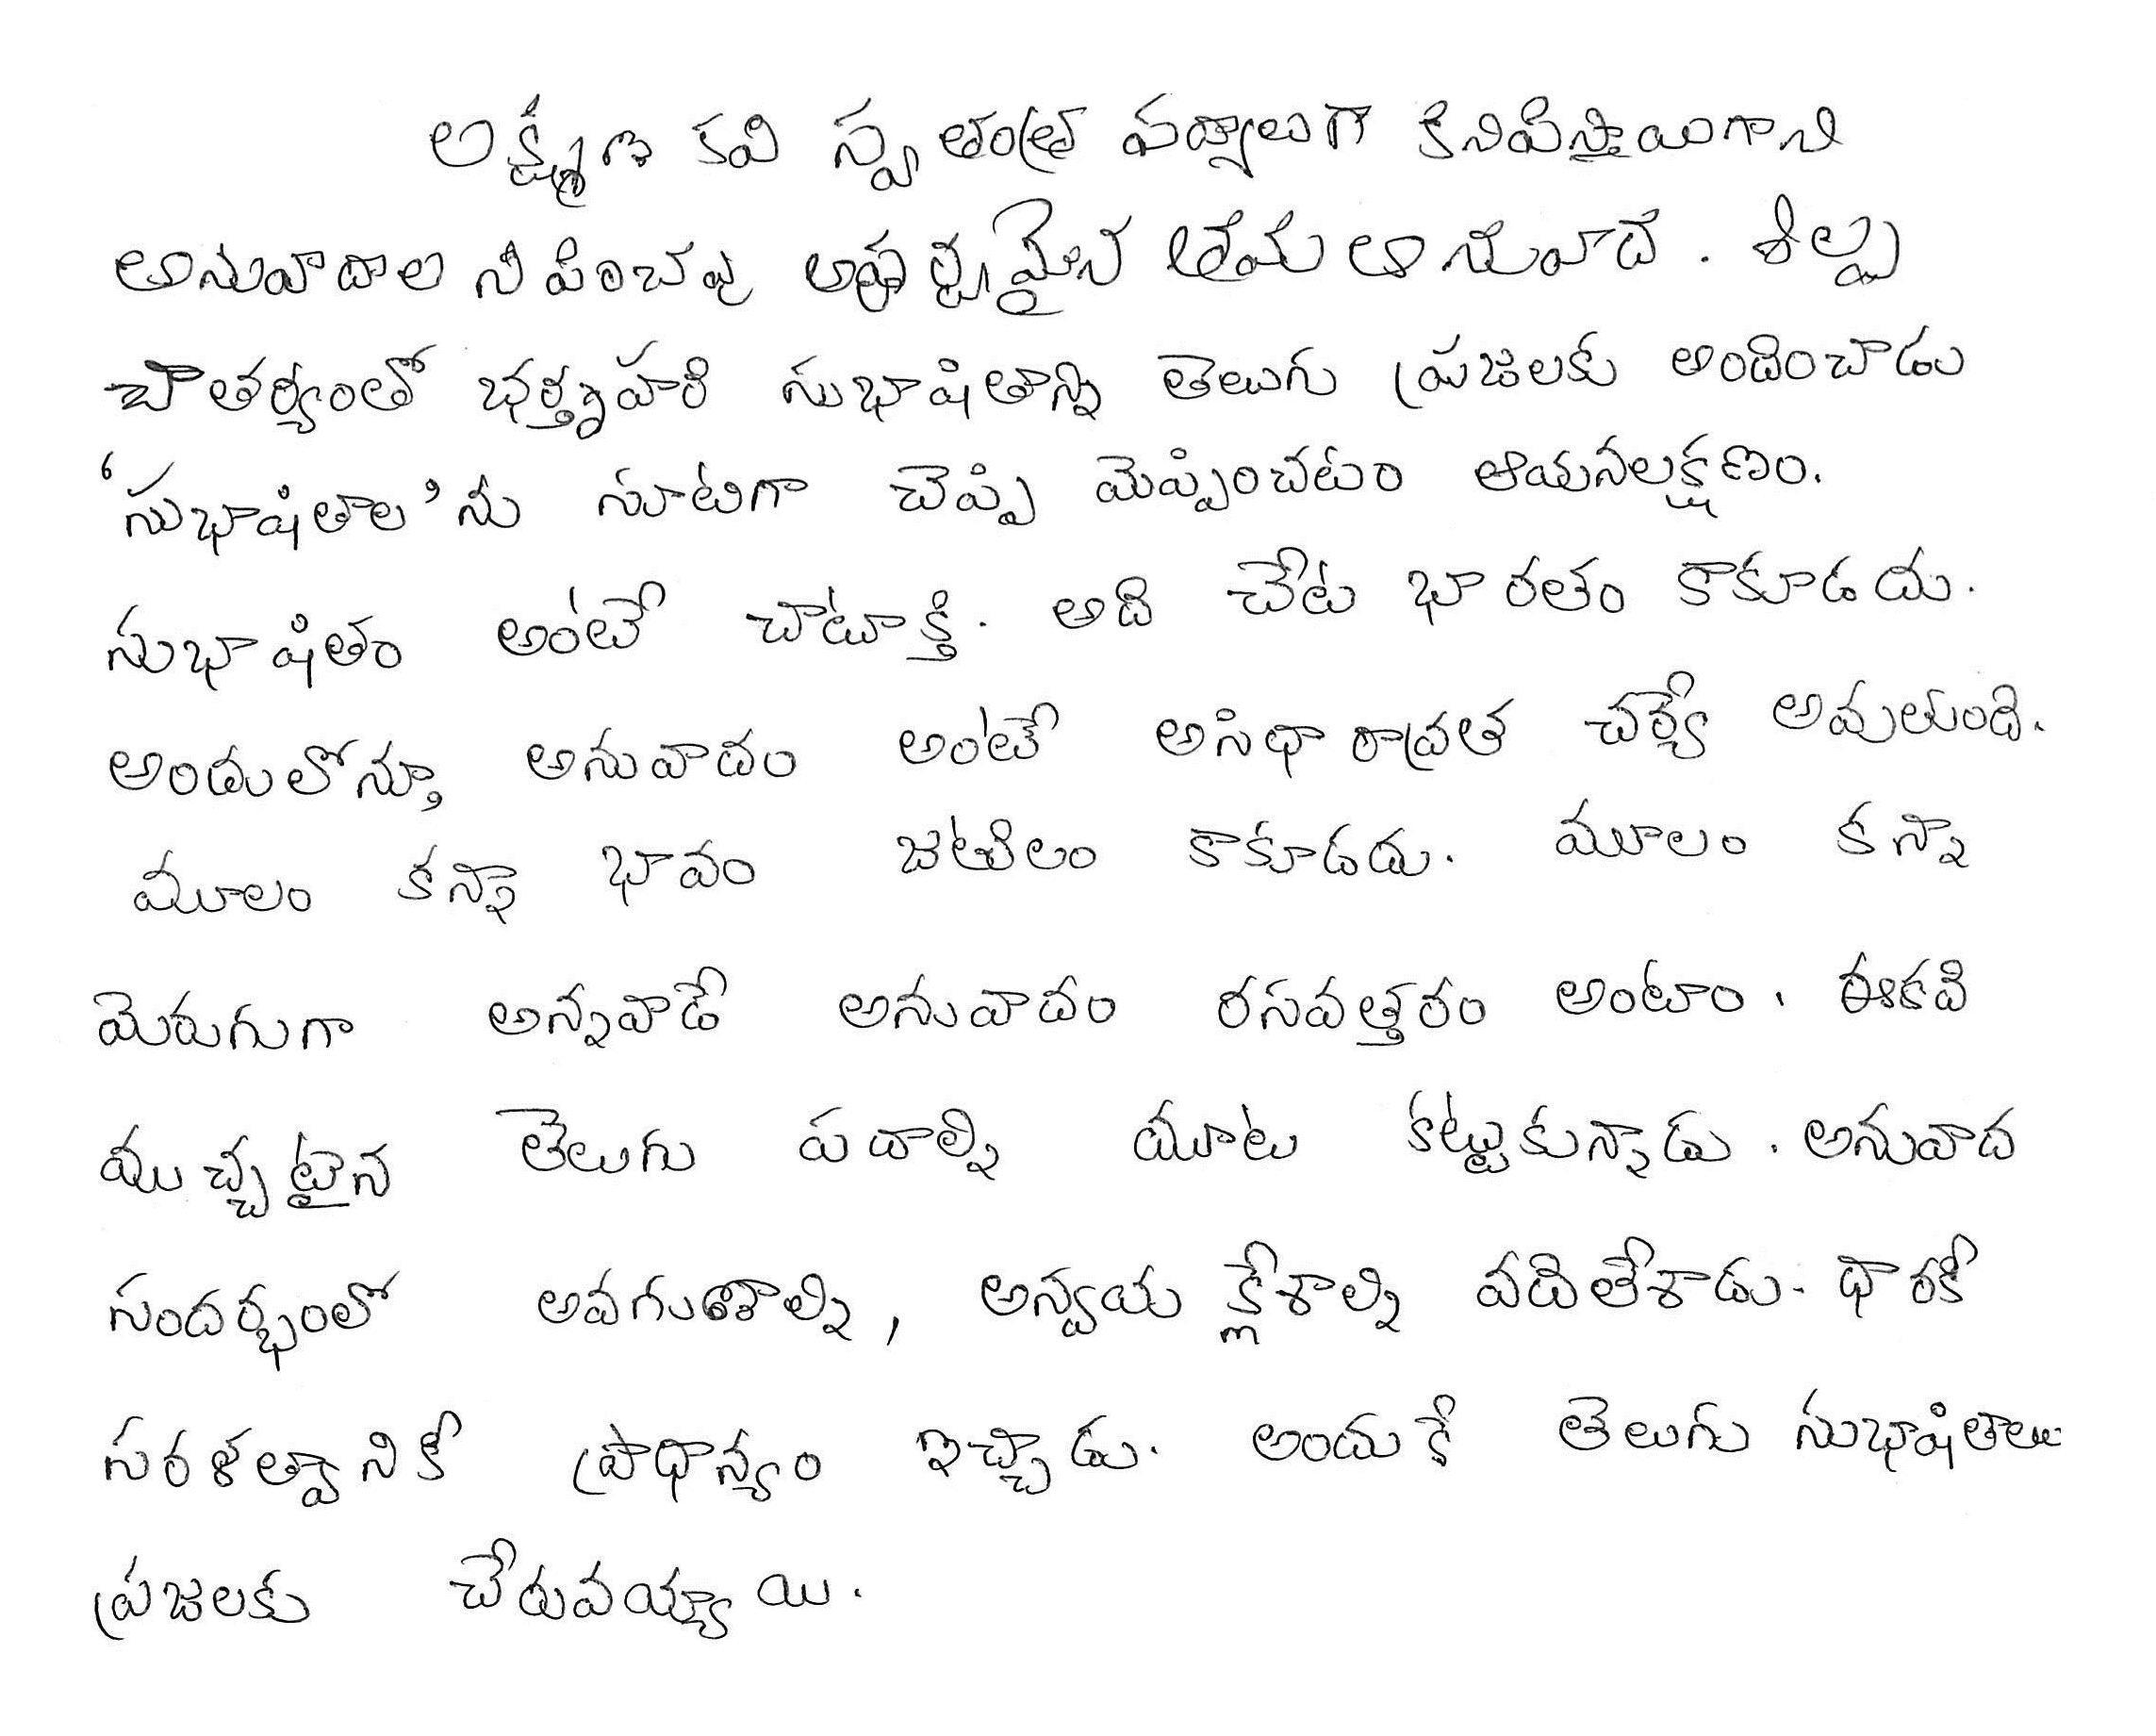 లక్ష్మణ కవి స్వతంత్ర పద్యాలుగా కనిపిస్తాయిగాని
అనువాదాల నిపించవు అపూర్వమైన అనువాద. శిల్ప
చాతర్యంతో భర్తృహరి సుభాషితాన్ని తెలుగు ప్రజలకు అందించాడు
‘సుభాషితాల’ను సూటిగా చెప్పి మెప్పించటం ఆయనలక్షణం.
సుభాషితం అంటే చాటూక్తి. అది చేట భారతం కాకూడదు.
అందులోనూ అనువాదం అంటే అసిధారావ్రత చర్యే అవుతుంది.
మూలం కన్నా భావం జటిలం కాకూడదు. మూలం కన్నా
మెరుగుగా అన్నవాడే అనువాదం రసవత్తరం అంటాం. ఈకవి
ముచ్చటైన తెలుగు పదాల్ని మూట కట్టుకున్నాడు. అనువాద
సందర్భంలో అవగుణాల్ని, అన్వయ క్లేశాల్ని వదిలేశాడు. ధారకి
సరళత్వానికి ప్రాధాన్యం ఇచ్చాడు. అందుకే తెలుగు సుభాషితాలు
ప్రజలకు చేరువయ్యాయి.